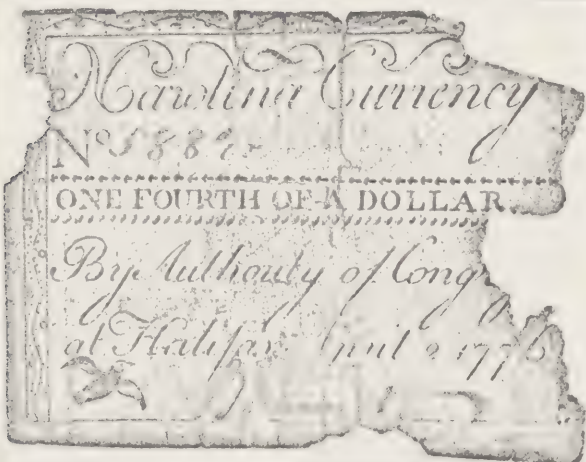 N Carolina Currency
No
ONE FOURTH OF A DOLLAR
By Authority of Cong
at Halifax April 2 1776